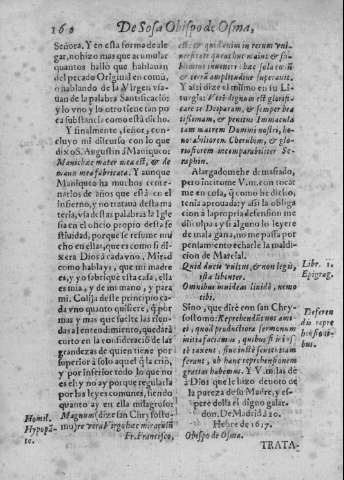 160
De Sosa Obispo de Osma,
Señora. Y en esta forma de ale
gar, no hizo mas que acumular
quantos hallò que hablauan
del pecado Original en comũ,
o hablando de la Virgen vsa-
uan de la palabra Santificaciõ:
y lo vno y lo otro tiene tan po
ca substancia como està dicho.
Y finalmente, señor, con-
cluyo mi discurso con lo que
dixo S. Augustin à Maniqueo:
Manichæe mater mea est, & de
manu mea fabricata. Y aunque
Maniqueo ha muchos cente-
narios de años que està en el
infierno, y no trataua desta ma
teria, vsa destas palabras la Igle
sia en el oficio propio desta fe
stiuidad, porque se resume mu
cho en ellas, que es como si di-
xera Dios à cada vno, Mirad
como hablays, que mi madre
es, y yo fabriquè esta casa, ella
es mia, y de mi mano, y para
mi. Colija deste principio ca-
da vno quanto quisiere, q̃ por
mas y mas que suelte las riẽdas
al entendimiento, quedarà
corto en la consideracion de las
grandezas de quien tiene por
superior à solo aquel q̃ la criò,
y por inferior todo lo que no
es el: y no ay porque regularla
por las leyes comunes, siendo
quanto ay en ella milagroso:
Magnum (dize san Chrysosto-
mo) re vera Virgo hæc miraculũ
Homil.
Hypopã-
te.
Fr. Francisco,
est: & quid enim in rerum vni-
uersitate quærat hac maius & su-
blimius inuenire? hæc sola cœlũ
& terrã amplitudine superauit.
Y assi dize el mismo en su Li-
turgia: Verè dignum est glorifi-
care te Deiparam, & semper bea
tissimam, & penitus Immacula
tam matrem Domini nostri, ho-
norabiliorem Cherubim, & glo-
riosiorem incomparabiliter Se-
raphin.
Alargadome he demasiado,
pero incitome V.m. con tocar
me en cosa, q̃ como he dicho,
tenia aprouada: y assi la obliga
cion à la propria defension me
disculpa: y si alguno lo leyere
de mala gana, no me passa por
pensamiento echarle la maldi-
cion de Marcial.
Quid docte vultus, & non legis,
ista libenter.
Omnibus inuideas liuide, nemo
tibi.
Libr. 1.
Epigrag.
Sino, que dirè con san Chry-
sostomo:
de Dios que le hizo deuoto de
la pureza de su Madre, y es-
pere della el digno galar-
don. De Madrid 20.
Hebre de 1617.
Obispo de Osma.
TRATA-